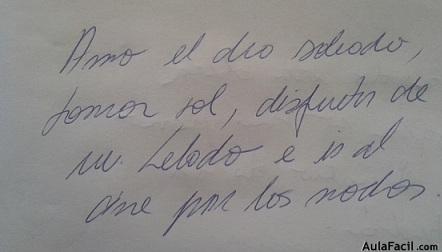 Amo el día soleado,
tomar sol, disfrutar de
un helado e ir al
cine por las noches.
AulaFacil.com